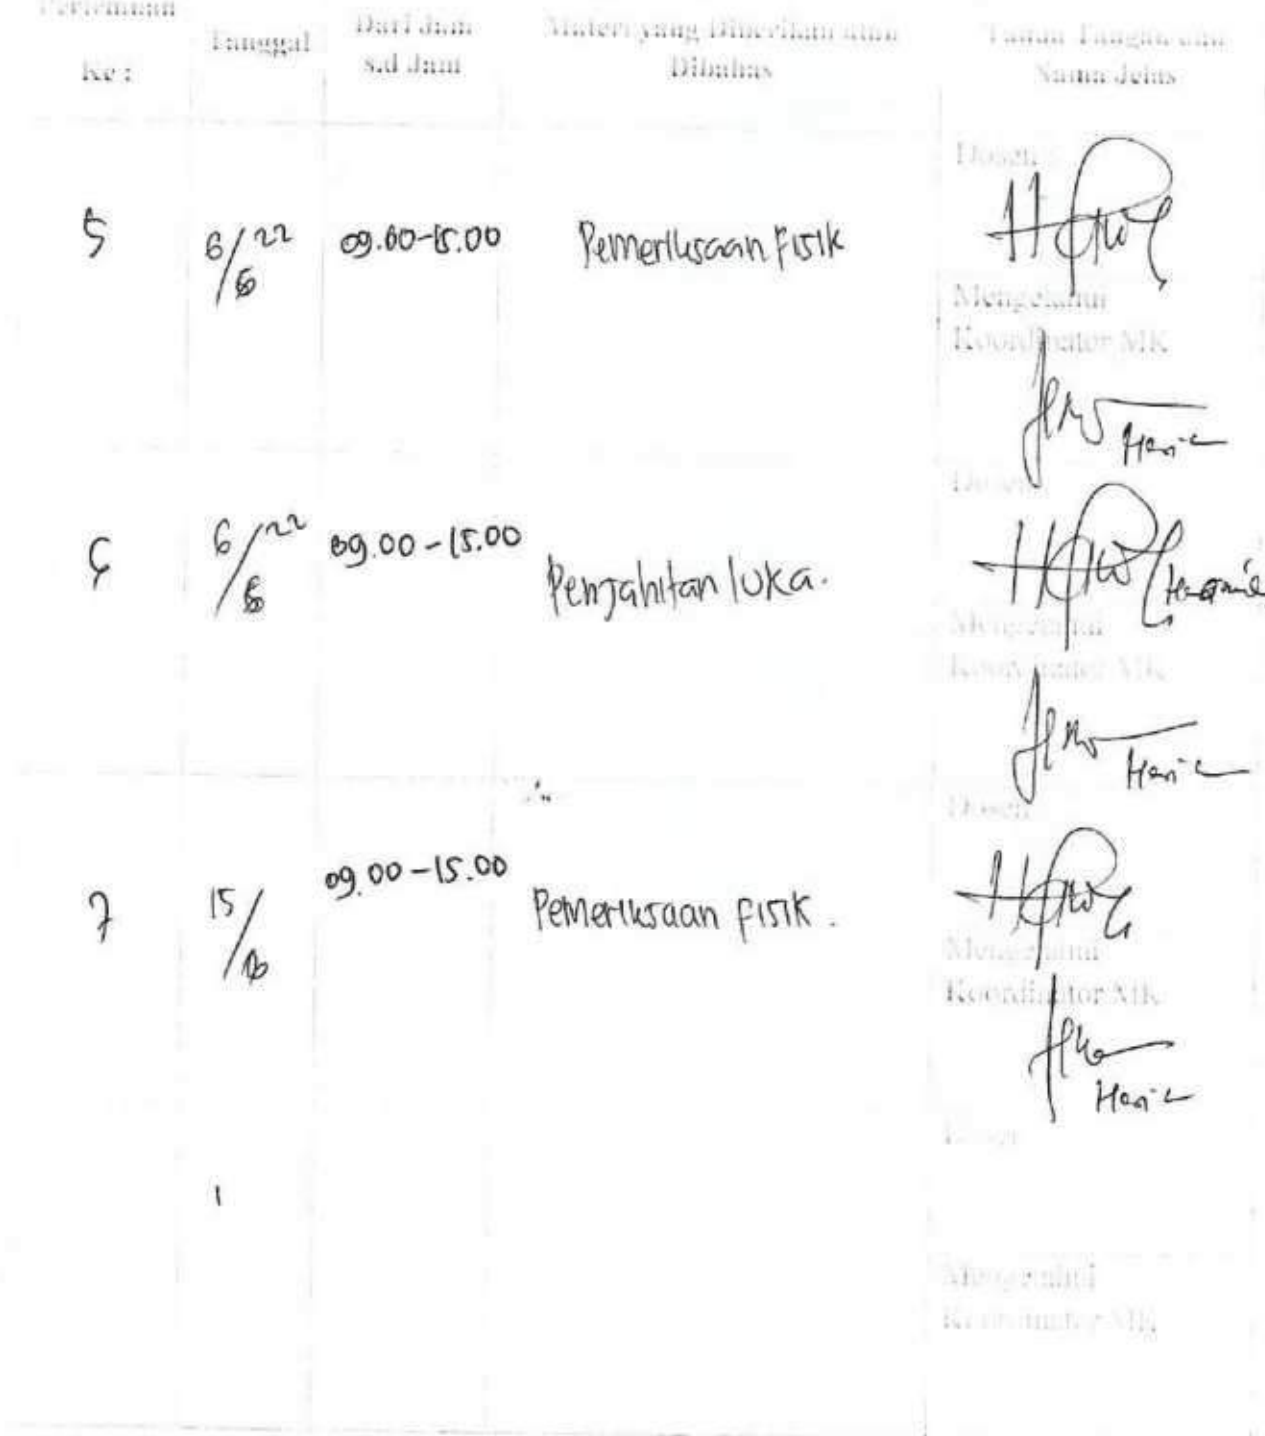 Pertemuan
Ke :
Tanggal
Dari Jam
s.d Jam
Materi yang Diberikan atau
Dibahas
Tanda Tangan dan
Nama Jelas
5
6/6 22
09.00-15.00
Pemeriksaan Fisik
Dosen
Mengetahui
Koordinator MK
6
6/6 22
09.00-15.00
Penjahitan luka.
Dosen
Mengetahui
Koordinator MK
7
15/6
09.00-15.00
Pemeriksaan Fisik.
Dosen
Mengetahui
Koordinator MK
Dosen
Mengetahui
Koordinator MK